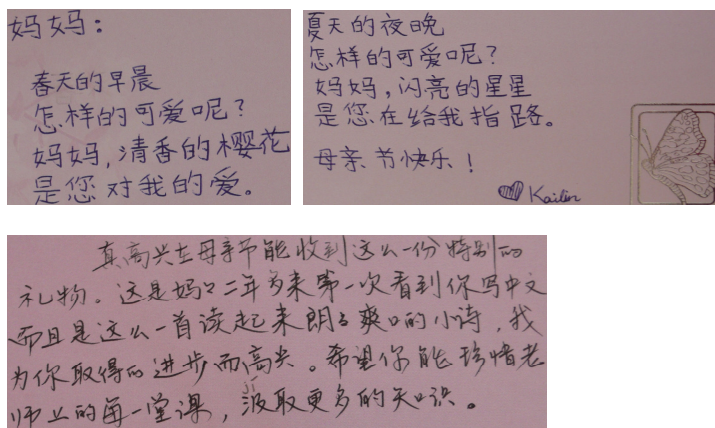 妈妈：
春天的早晨
怎样的可爱呢？
妈妈，清香的樱花
是您对我的爱。
夏天的夜晚
怎样的可爱呢？
妈妈，闪亮的星星
是您在给我指路。
母亲节快乐！
Kailin
真高兴在母亲节能收到这么一份特别的
礼物。这是妈々二年多来第一次看到你写中文
而且是这么一首读起来朗々爽口的小诗，我
为你取得的进步而高兴。希望你能珍惜老
师上的每一堂课，汲取更多的知识。
jí